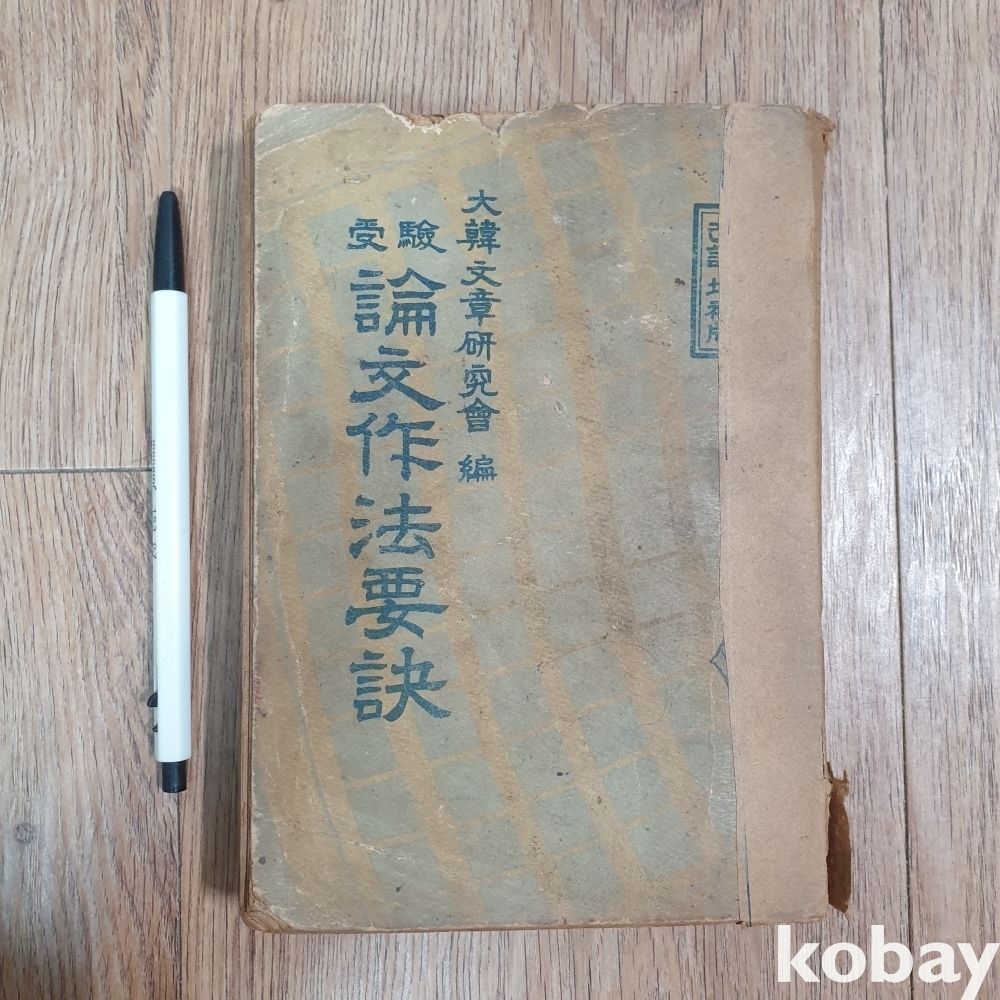 大韓文章研究會 編
受驗
論文作法要訣
kobay